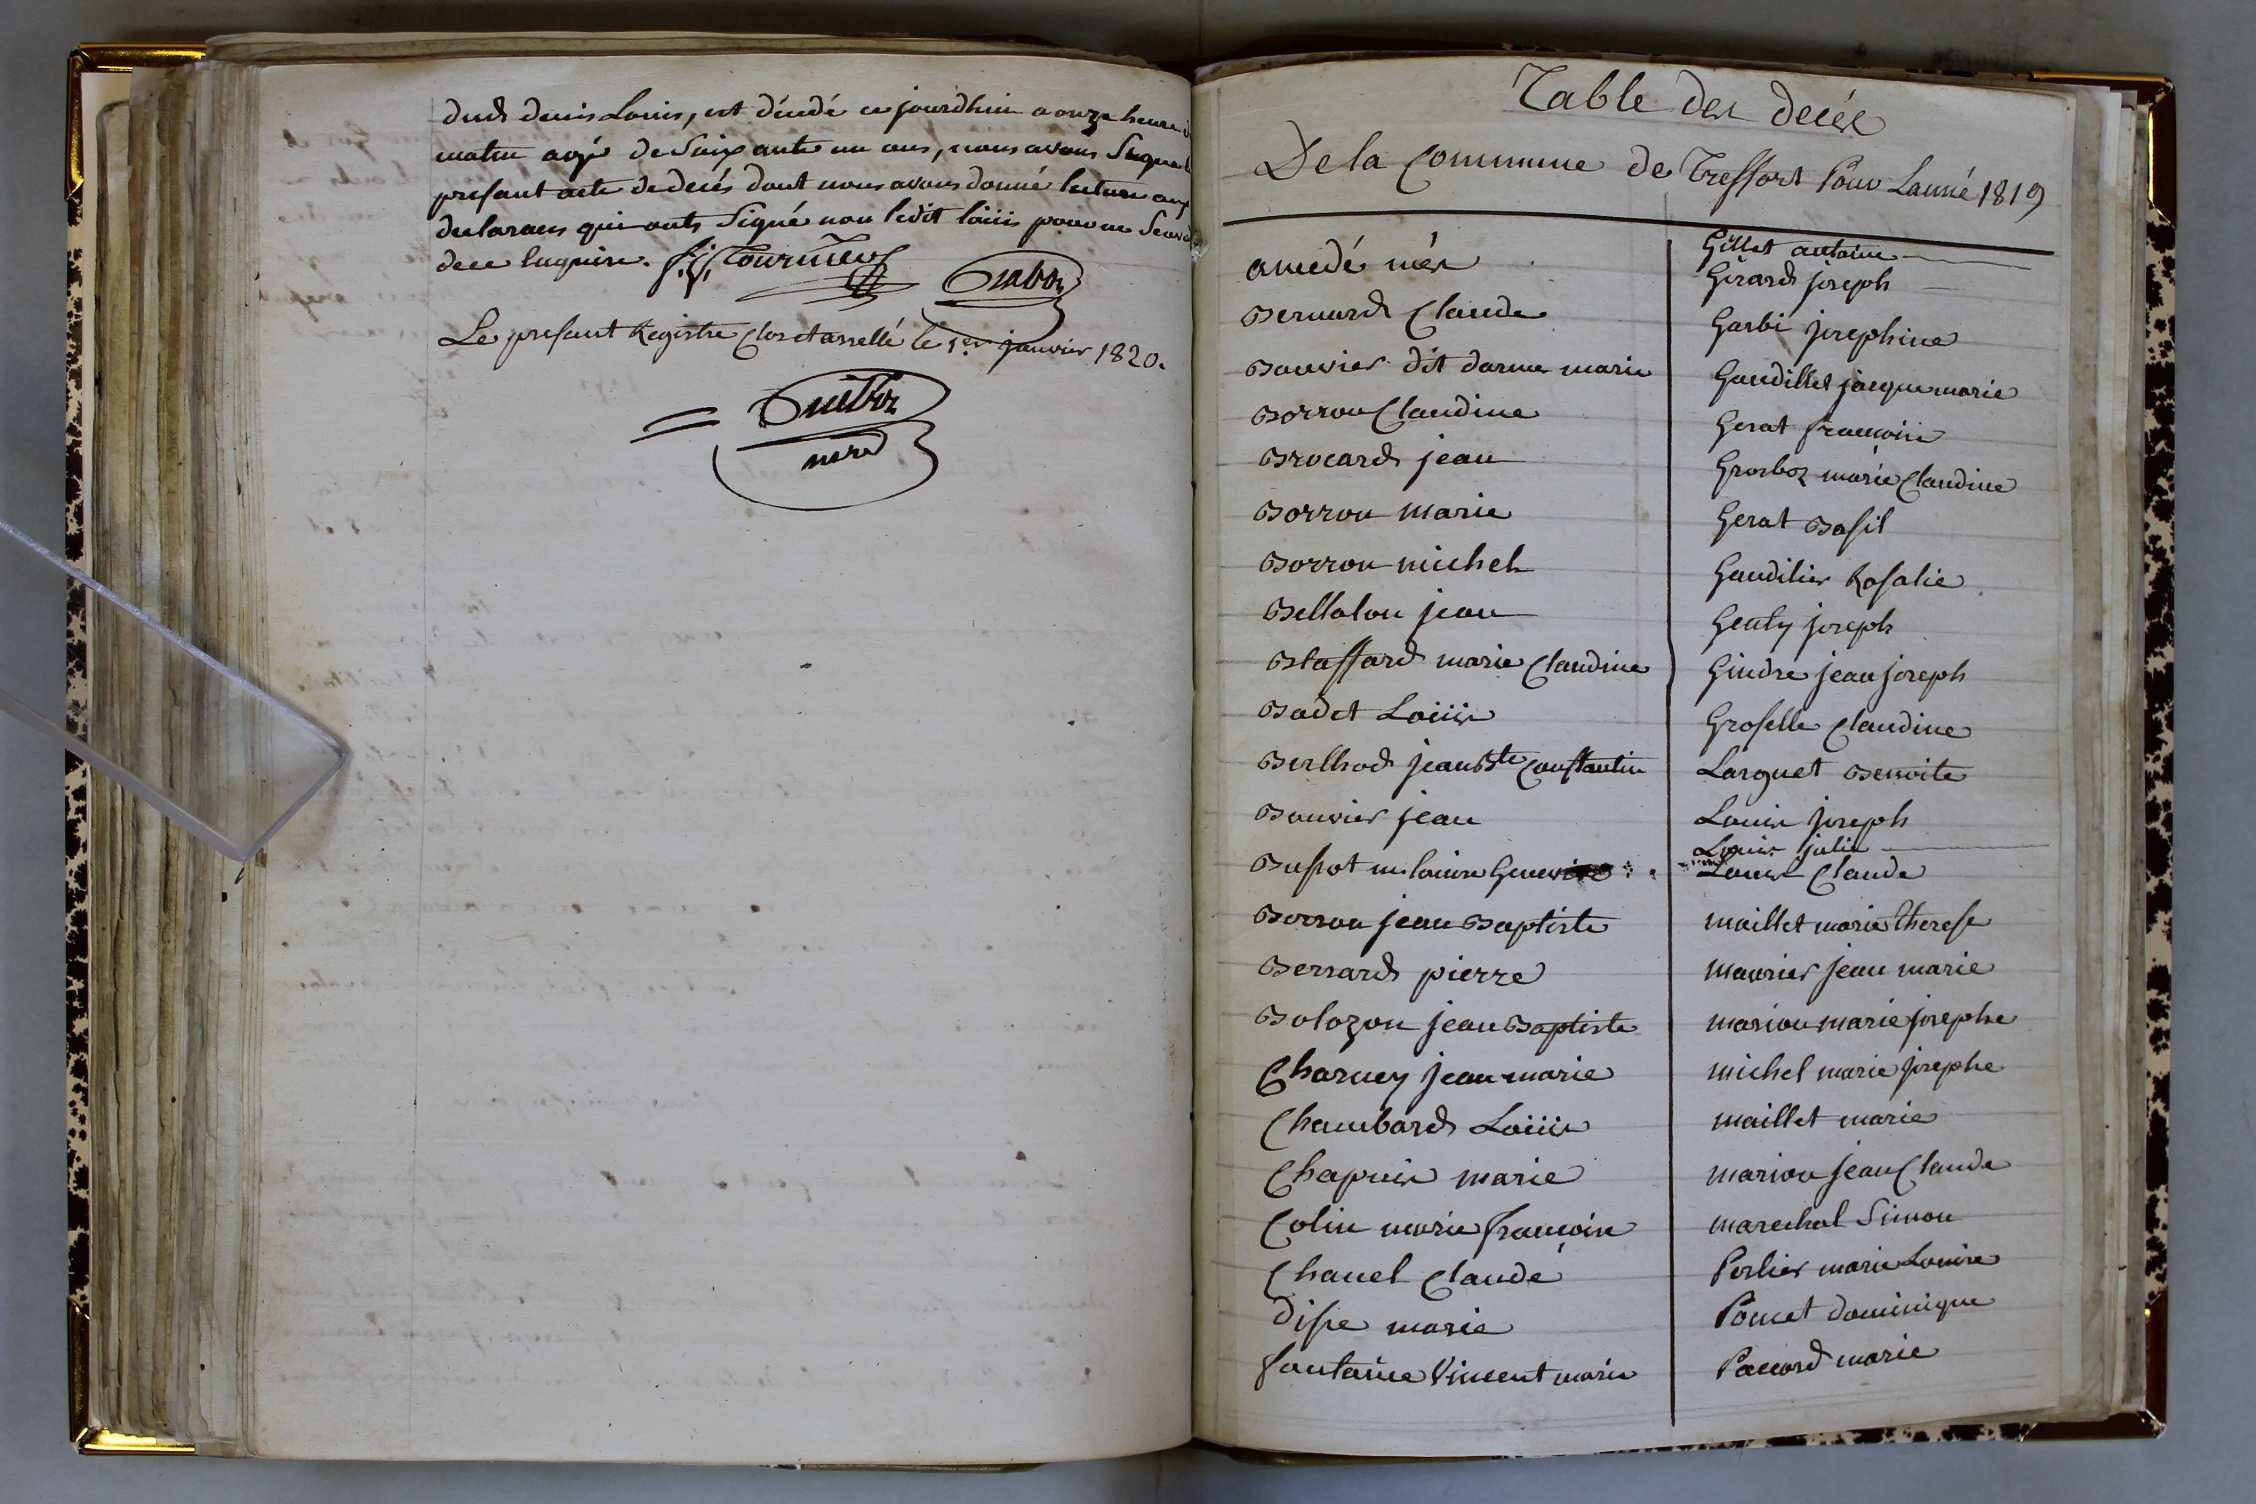 dud. denis Louis, est décédé ce jourdhui a onze heure d
matin agé de Soixante un ans, nous avons Signé le
presant acte de decés dont nous avons donné lecture aux
declarans qui onts Signé non ledit loüis pour ne Savoir
de ce Enquire. f. j. Tournier Guiboz
Le presant Registre Clos et arretté le 1er janvier 1820.
Guiboz
mere
Table des decés
De la Commune de Treffort Pour Lanné 1819
amedé més
Bernard Claude
Bouvier dit darme marie
Borron Claudine
Brocard jean
Borron marie
Borron michel
Bellaton jean
Blaffard marie Claudine
Badet Loüis
Berthod jean Bte Constantin
Bouvier jean
Buffot m. louise Genevi
Borron jean Baptiste
Berrard pierre
Bolozon jean Baptiste
Charney jean marie
Chambard Loüis
Chapuis marie
Colin marie françoise
Chanel Claude
dispe marie
fontaine Vincent marie
Gillet antoine
Girard joseph
Garbi josephine
Gaudillet jacque marie
Gerat françoise
Grosboz marie Claudine
Gerat Basil
Gaudilier Rosalie
Genty joseph
Gindre jean joseph
Groselle Claudine
Larguet Benoite
Louis joseph
Louis julie
Louis Claude
maillet marie therese
maurier jean marie
marion marie josephe
michel marie josephe
maillet marie
marion jean Claude
marechal Simon
Perlier marie Louise
Poncet dominique
Paccard marie